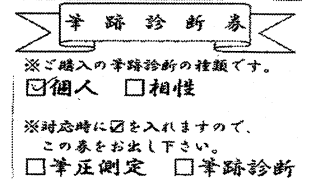 筆跡診断券
※ご購入の筆跡診断の種類です。
☑個人 □相性
※対応時に☑を入れますので、
この券をお出し下さい。
□筆圧測定 □筆跡診断